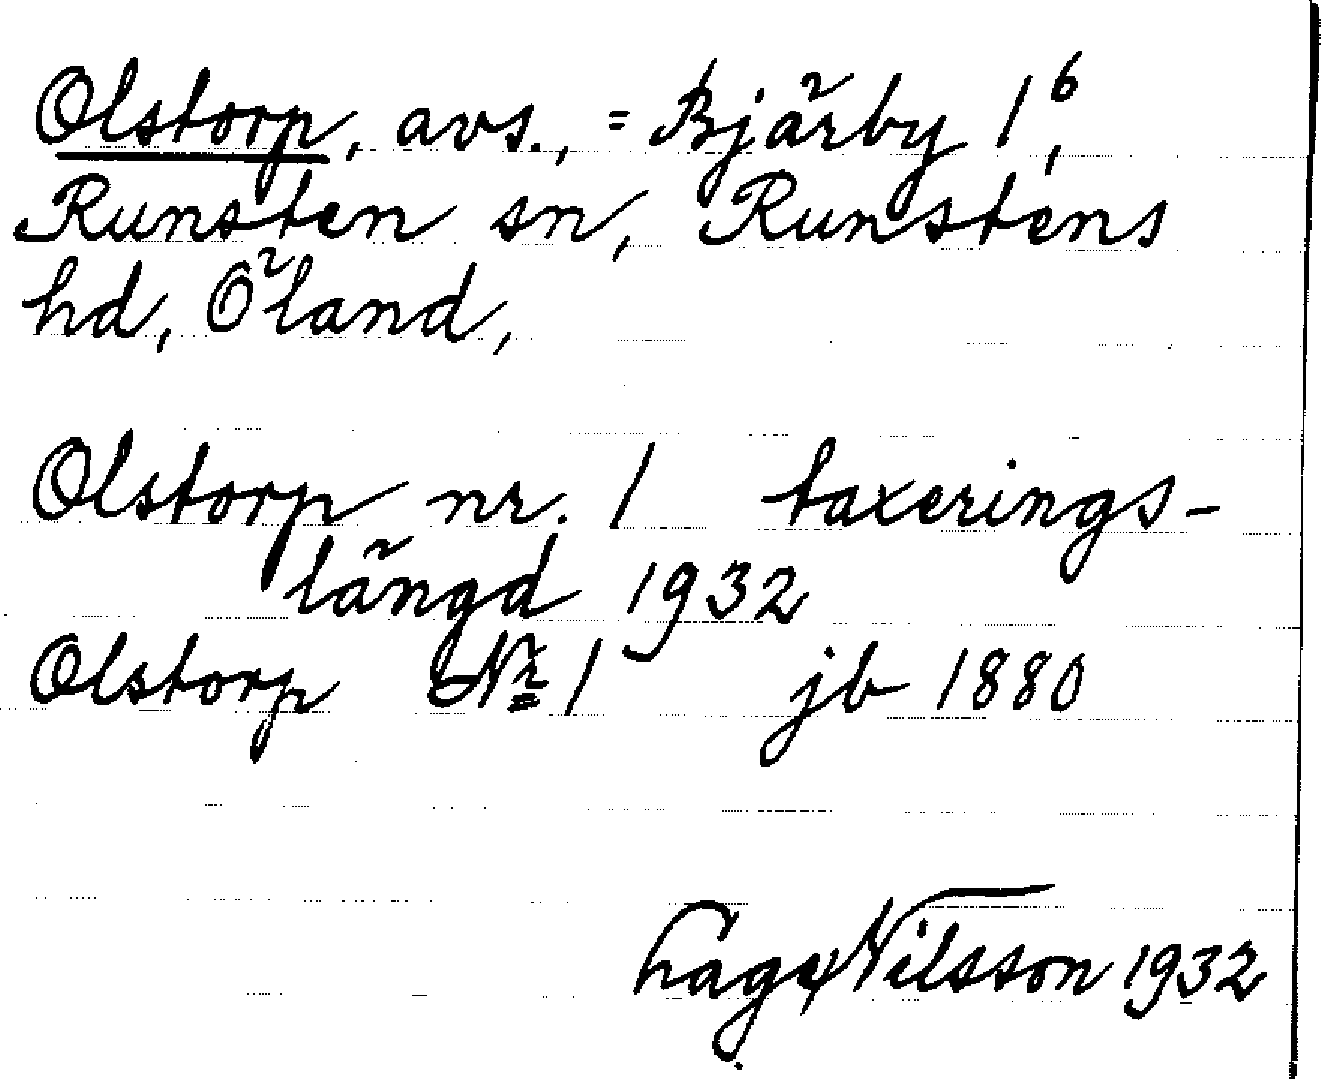 Olstorp, avs., = Bjärby 1⁶,
Runsten sn, Runstens
hd, Öland,
Olstorp nr. 1 taxerings-
längd 1932
Olstorp Nr 1 jb 1880
Nilsson 1932